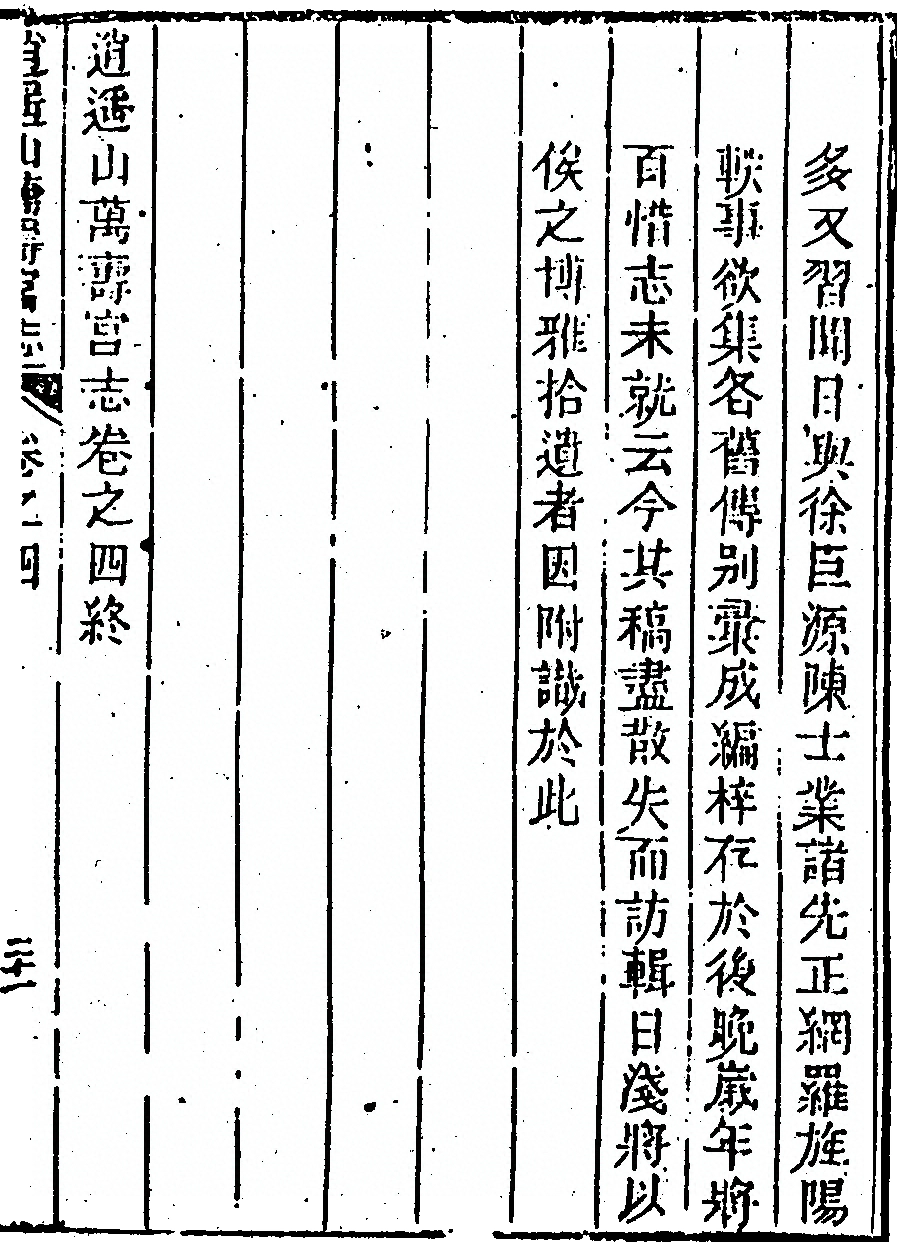 多又習聞日與徐巨源陳士業諸先正網羅旌陽
軼事欲集各舊傳别彚成編梓存於後晚嵗年將
百惜志未就云今其稿盡散失而訪輯日淺將以
俟之博雅拾遺者因附識於此
逍遥山萬壽宫志卷之四終
逍遥山萬壽宫志 卷之四 二十一